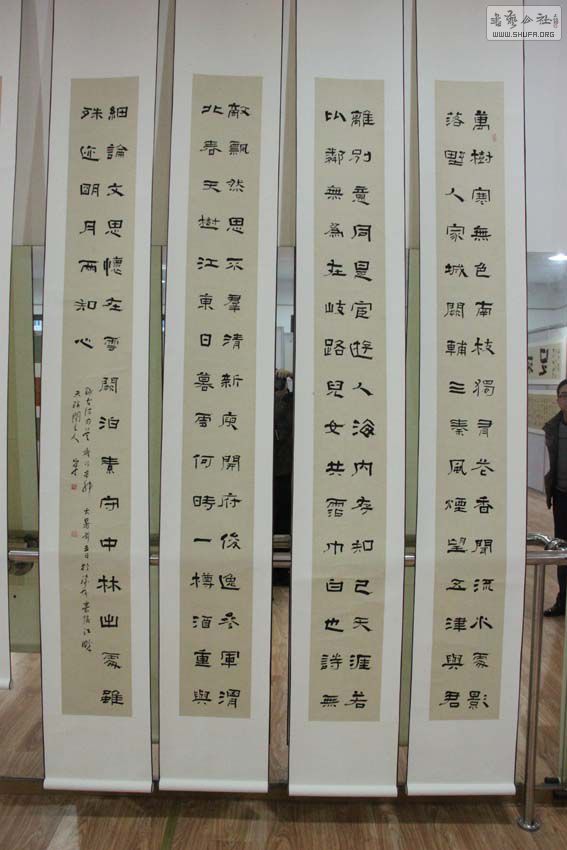 萬樹寒無色南枝獨有花香聞流水處影
落野人家城闕輔三秦風煙望五津與君
離別意同是宦遊人海內存知己天涯若
比鄰無為在岐路兒女共霑巾白也詩無
敵飄然思不羣清新庾開府俊逸參軍渭
北春天樹江東日暮雲何時一樽酒重與
細論文思懷在雲闕泊素守中林出處雖
殊迹明月兩知心
書藝公社
WWW.SHUFA.ORG